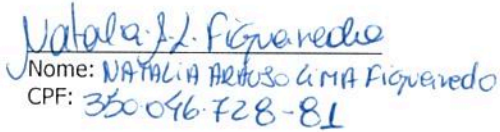 Natalia A. L. Figueiredo
Nome: NATALIA ARAUJO LIMA Figueiredo
CPF: 350.046.728-81